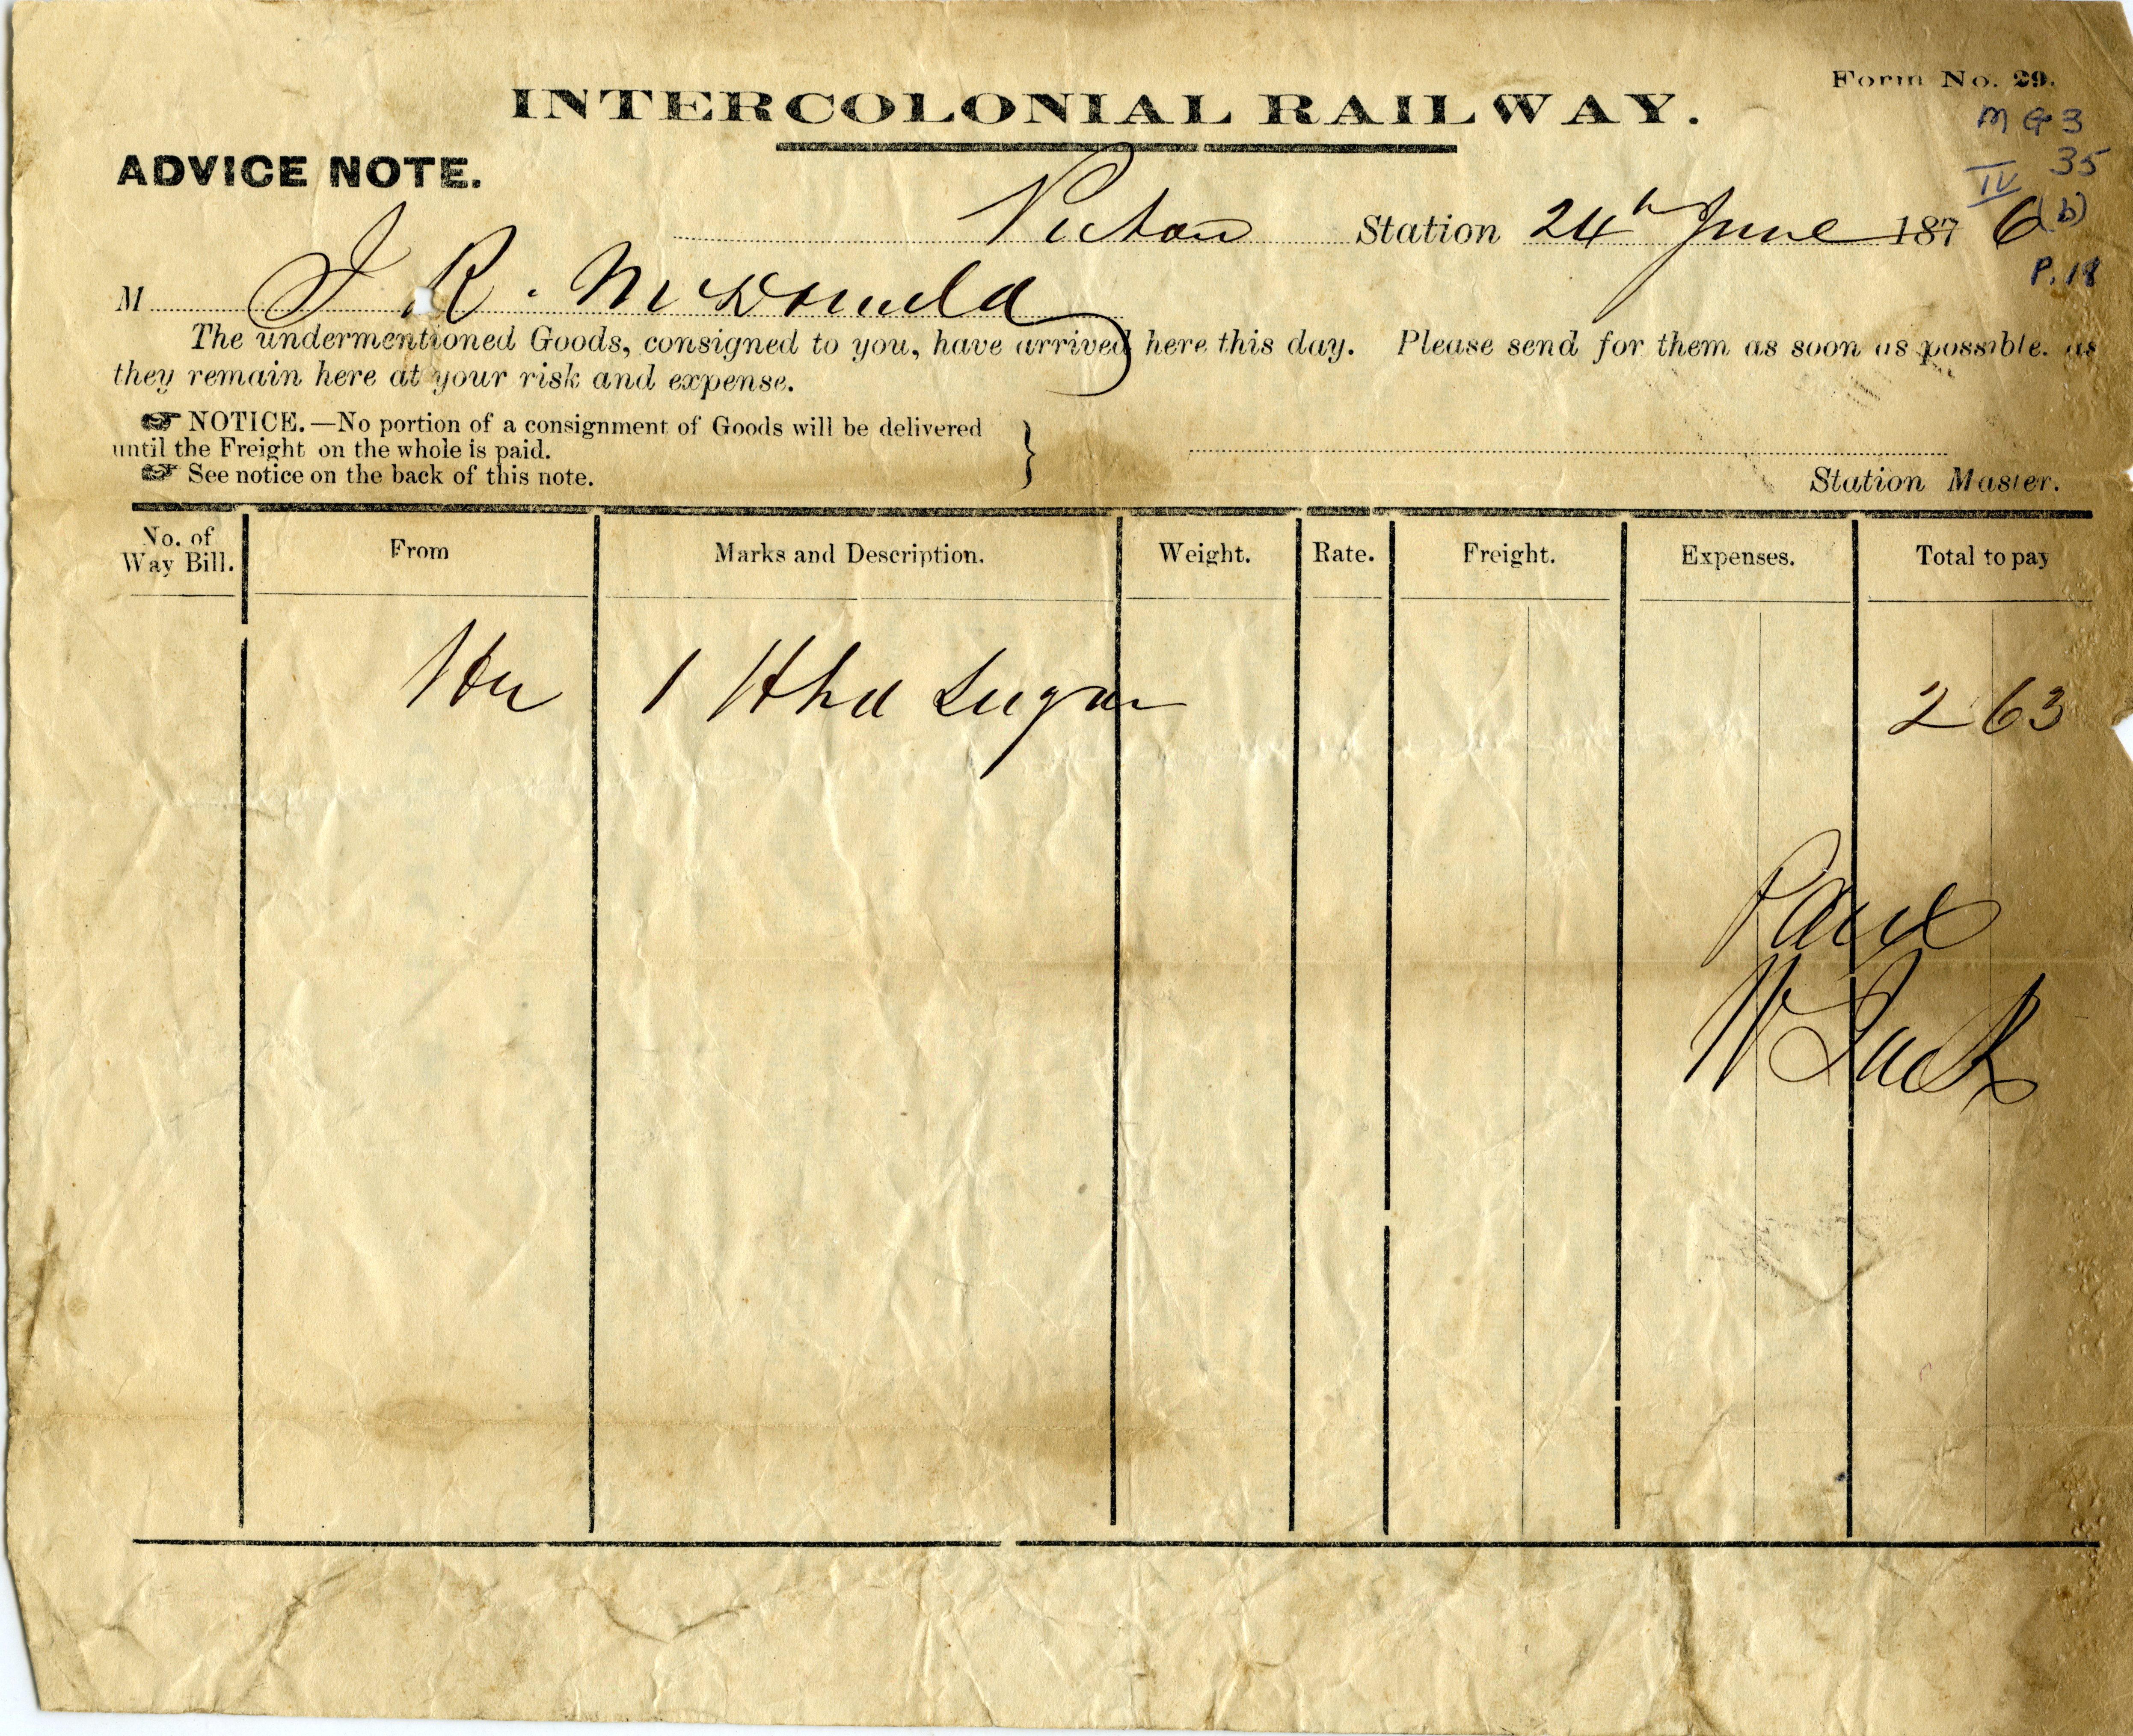 Form No. 29.
INTERCOLONIAL RAILWAY.
MG3
35
IV
(b)
P. 18
ADVICE NOTE.
Pictou Station 24th June 1876
M J R. McDonald
The undermentioned Goods, consigned to you, have arrived here this day. Please send for them as soon as possible. as
they remain here at your risk and expense.
☞ NOTICE.—No portion of a consignment of Goods will be delivered
until the Freight on the whole is paid.
☞ See notice on the back of this note.
Station Master.
No. of Way Bill. From Marks and Description. Weight. Rate. Freight. Expenses. Total to pay
1 Hhd Sugar 2 63
Paid